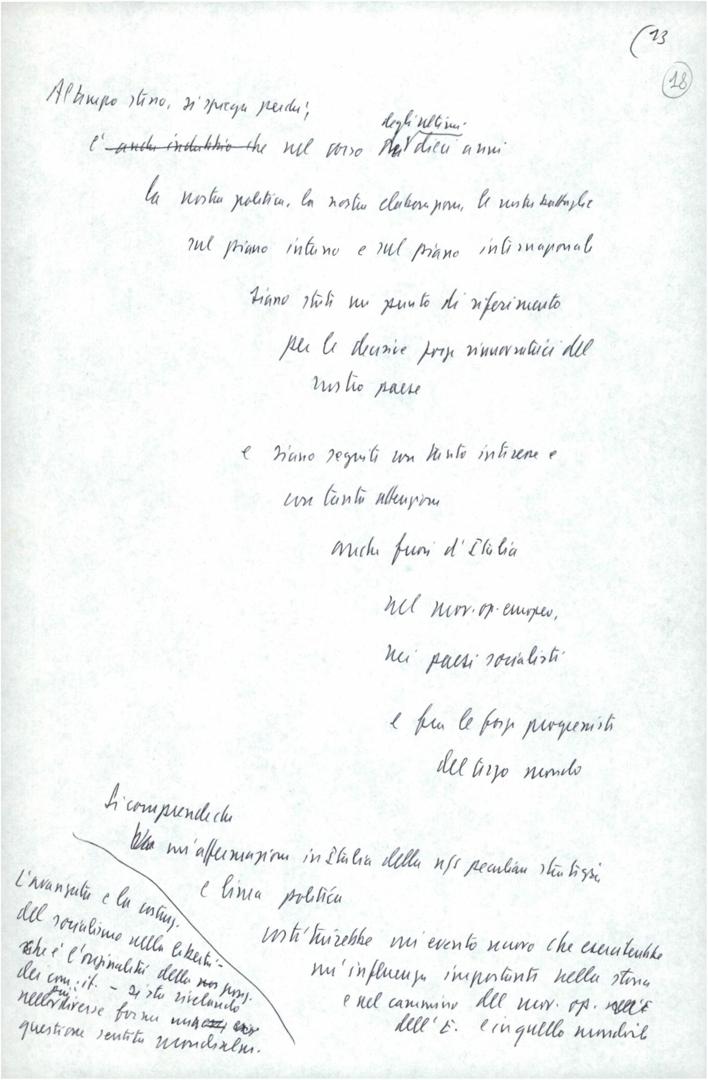 (13
18
Al tempo stesso, si spiega perché,
è anche indubbio che nel corso degli ultimi dieci anni
la nostra politica, la nostra elaborazione, le nostre battaglie
sul piano interno e sul piano internazionale
siano stati un punto di riferimento
per le decisive forze rinnovatrici del
nostro paese
e siano seguiti con tanto interesse e
con tanta attenzione
anche fuori d'Italia
nel mov. op. europeo,
nei paesi socialisti
e fra le forze progressisti
del terzo mondo
Si comprende che
un'affermazione in Italia della ns peculiare strategia
e linea politica
costituirebbe un evento nuovo che eserciterebbe
un'influenza importante nella storia
e nel cammino del mov. op.
dell'E. e in quello mondiale
L'avanzata e la costruz.
del socialismo nella libertà -
che è l'originalità della pos.
dei com. it. - si sta rivelando
nelle diverse forme
questione sentita mondialm.